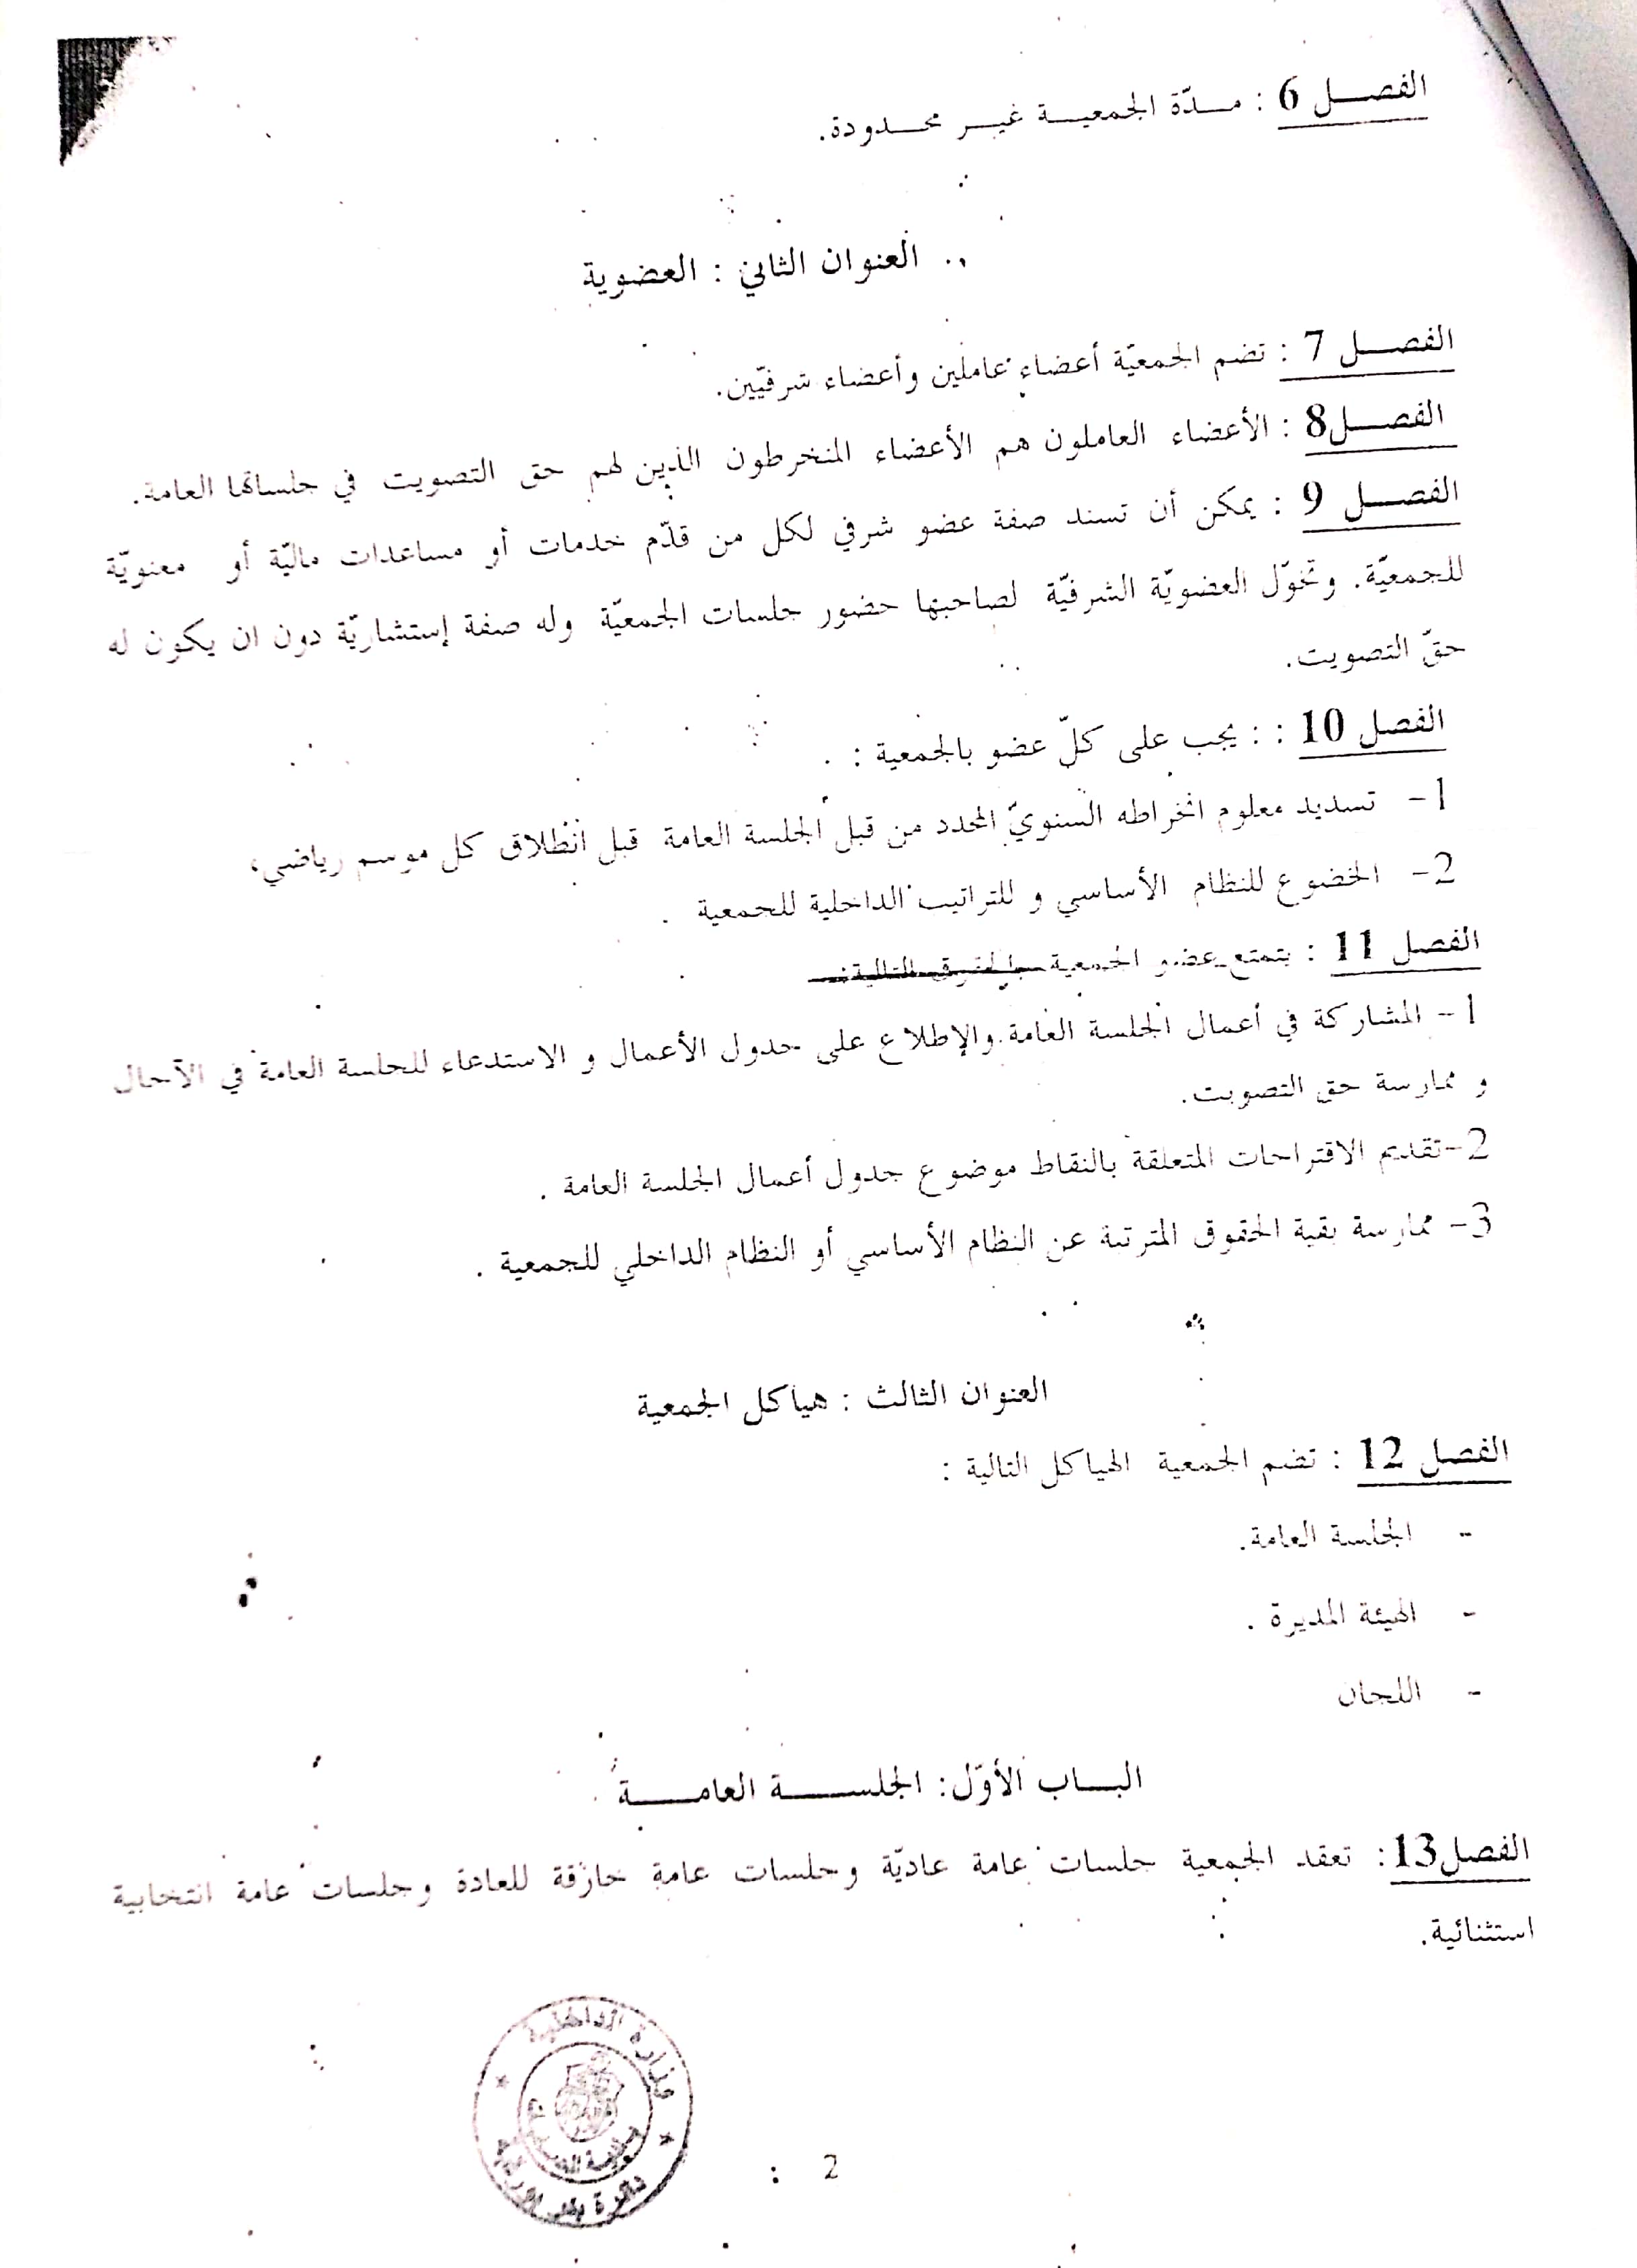 الفصل 6 : مدّة الجمعية غير محدودة.
العنوان الثاني : العضوية
الفصل 7 : تضم الجمعيّة أعضاء عاملين وأعضاء شرفيّين.
الفصل8 : الأعضاء العاملون هم الأعضاء المنخرطون الذين لهم حق التصويت في جلساتها العامة.
الفصل 9 : يمكن أن تسند صفة عضو شرفي لكل من قدّم خدمات أو مساعدات ماليّة أو معنويّة
للجمعيّة. وتخوّل العضويّة الشرفيّة لصاحبها حضور جلسات الجمعيّة وله صفة إستشاريّة دون ان يكون له
حقّ التصويت.
الفصل 10 : : يجب على كلّ عضو بالجمعية :
1- تسديد معلوم انخراطه السنويّ المحدد من قبل الجلسة العامة قبل انطلاق كل موسم رياضي،
2- الخضوع للنظام الأساسي و للتراتيب الداخلية للجمعية .
الفصل 11 : يتمتع عضو الجمعية بالحقوق التالية:
1- المشاركة في أعمال الجلسة العامة والإطلاع على جدول الأعمال و الاستدعاء للجلسة العامة في الآجال
و ممارسة حق التصويت.
2-تقديم الاقتراحات المتعلقة بالنقاط موضوع جدول أعمال الجلسة العامة .
3- ممارسة بقية الحقوق المترتبة عن النظام الأساسي أو النظام الداخلي للجمعية .
العنوان الثالث : هياكل الجمعية
الفصل 12 : تضم الجمعية الهياكل التالية :
- الجلسة العامة.
- الهيئة المديرة .
- اللجان
الباب الأوّل: الجلسة العامة
الفصل13: تعقد الجمعية جلسات عامة عاديّة وجلسات عامة خارقة للعادة وجلسات عامة انتخابية
استثنائية.
وزارة الداخلية
2 :